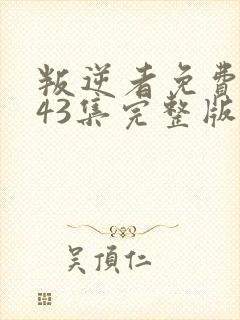 叛逆者免費
43集完整版
吴頂仁